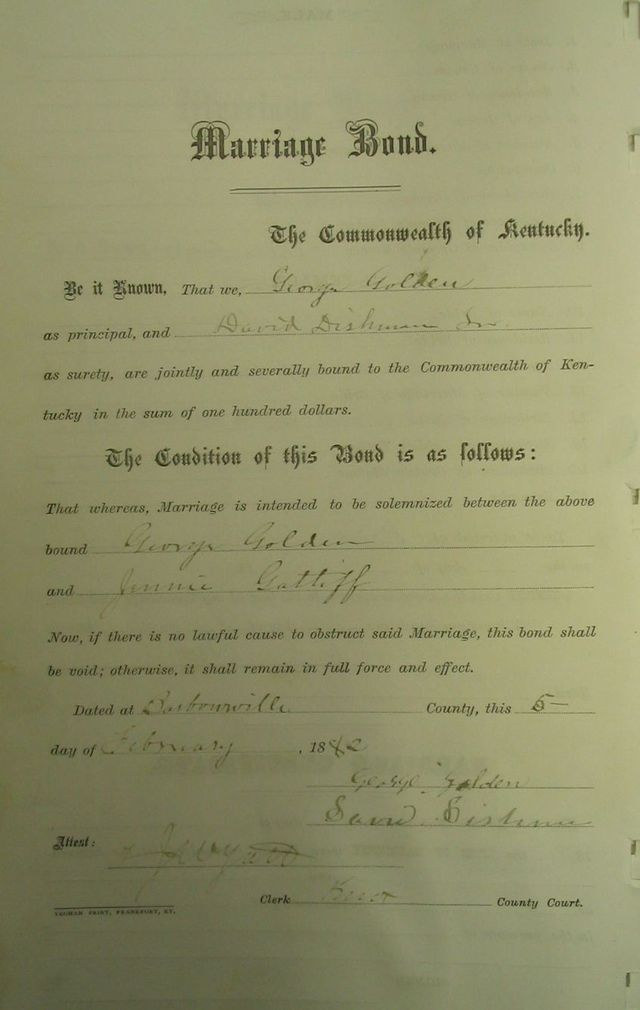 Marriage Bond.
The Commonwealth of Kentucky.
Be it Known, That we, George Golden
as principal, and David Dishman Jr.
as surety, are jointly and severally bound to the Commonwealth of Ken-
tucky in the sum of one hundred dollars.
The Condition of this Bond is as follows:
That whereas, Marriage is intended to be solemnized between the above
bound George Golden
and Jennie Gatliff
Now, if there is no lawful cause to obstruct said Marriage, this bond shall
be void; otherwise, it shall remain in full force and effect.
Dated at Barbourville County, this 5
day of February, 18
George Golden
David Dishman
Attest:
Clerk Knox County Court.
YEOMAN PRINT, FRANKFORT, KY.